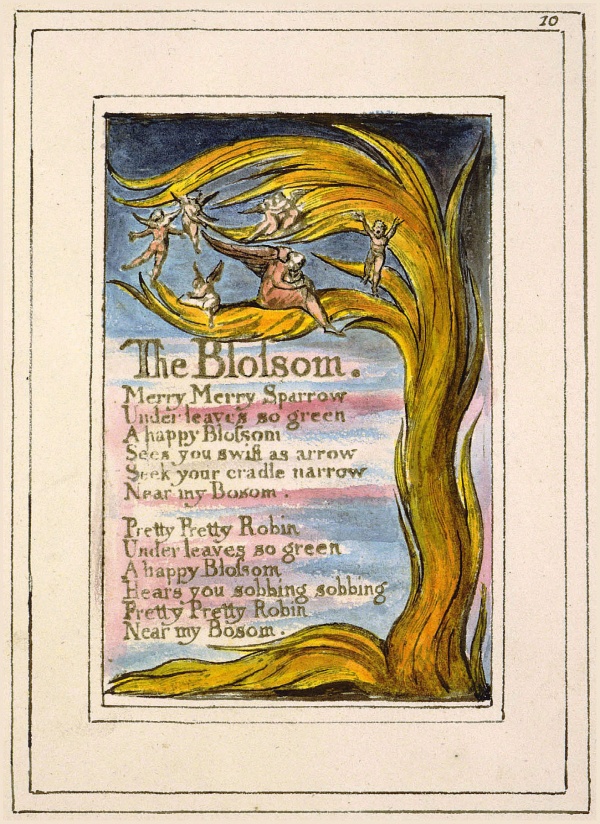 10
The Bloſsom.
Merry Merry Sparrow
Under leaves so green
A happy Bloſsom
Sees you swift as arrow
Seek your cradle narrow
Near my Bosom.
Pretty Pretty Robin
Under leaves so green
A happy Bloſsom
Hears you sobbing sobbing
Pretty Pretty Robin
Near my Bosom.